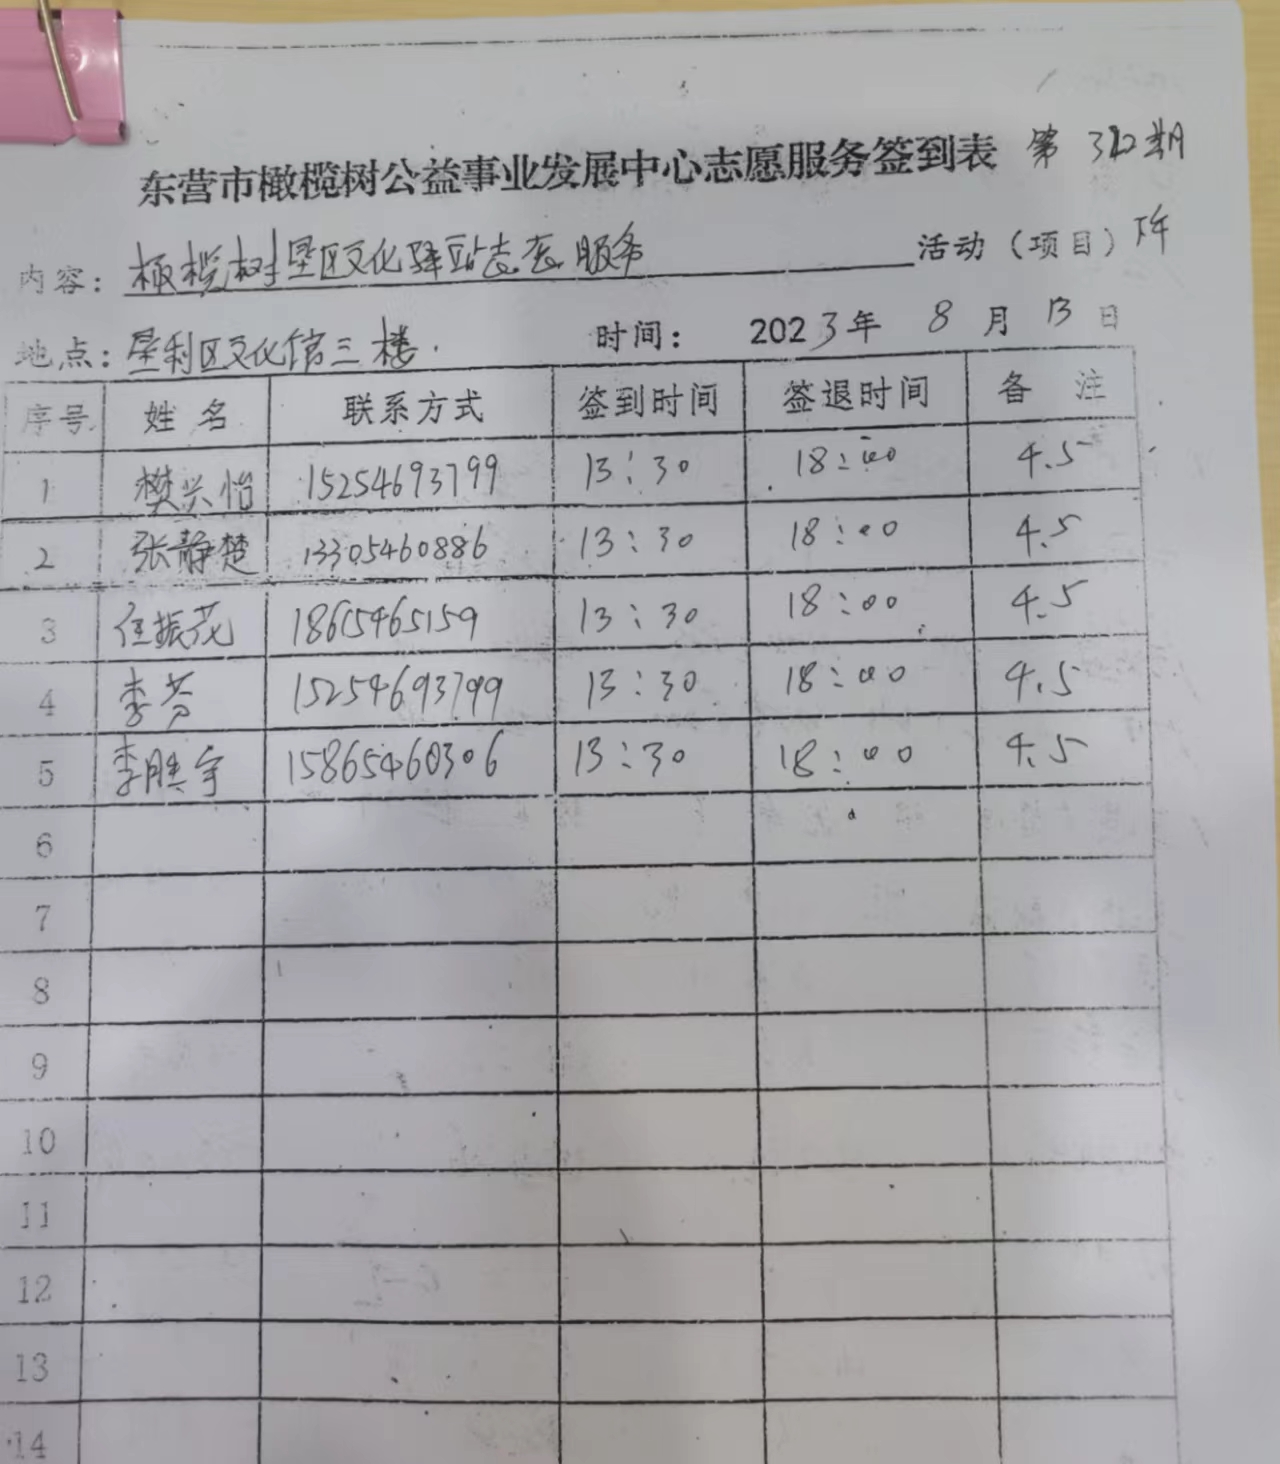 东营市橄榄树公益事业发展中心志愿服务签到表 第312期
内容：橄榄树垦区文化驿站志愿服务 活动（项目）下午
地点：垦利区文化馆三楼. 时间： 2023年 8 月 13 日
序号 姓 名 联系方式 签到时间 签退时间 备 注
1 樊兴怡 15254693799 13:30 18:00 4.5
2 张静楚 13305460886 13:30 18:00 4.5
3 任振花 18615465159 13:30 18:00 4.5
4 李芳 15254693799 13:30 18:00 4.5
5 李胜宇 15865460306 13:30 18:00 4.5
6
7
8
9
10
11
12
13
14